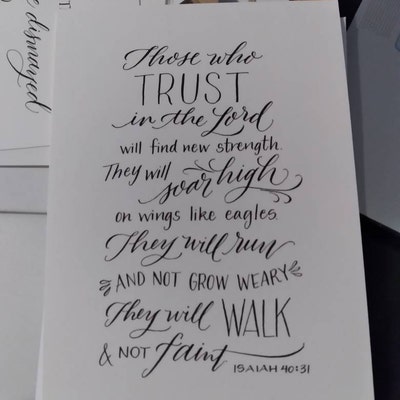 Those who
TRUST
in the Lord
will find new strength.
They will soar high
on wings like eagles.
They will run
AND NOT GROW WEARY
They will WALK
& NOT faint
ISAIAH 40:31
dismayed